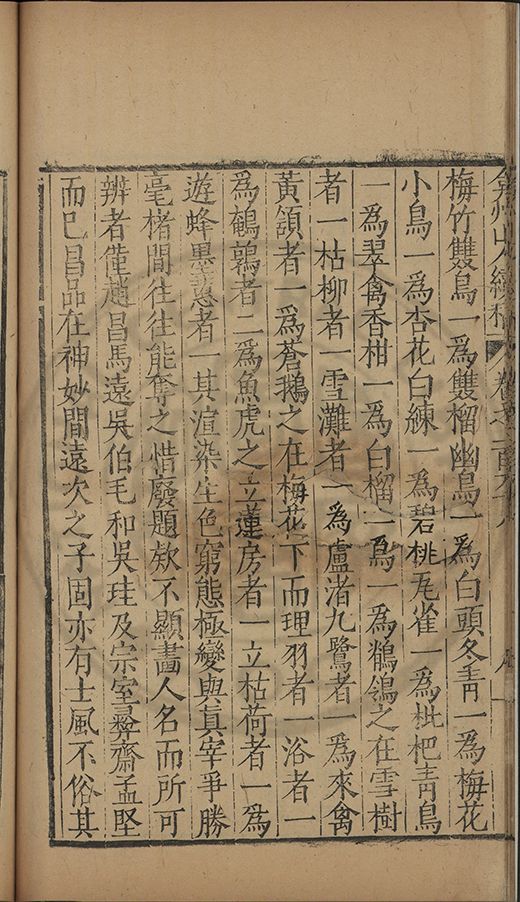 弇州山人續稿 卷之一百六十八
梅竹雙鳥一為雙榴幽鳥一為白頭冬靑一為梅花
小鳥一為杏花白練一為碧桃瓦雀一為枇杷靑鳥
一為翠禽香柑一為白榴一鳥一為鶺鴒之在雪樹
者一枯柳者一雪灘者一為蘆渚九鷺者一為來禽
黃頷者一為蒼鵝之在梅花下而理羽者一浴者一
為鵪鶉者二為魚虎之立蓮房者一立枯荷者一為
遊蜂墨蕙者一其渲染生色窮態極變與眞宰爭勝
毫楮間往往能奪之惜廢題欵不顯畫人名而所可
辨者僅趙昌馬遠吳伯毛和吳珪及宗室彝齋孟堅
而巳昌品在神妙間遠次之子固亦有士風不俗其